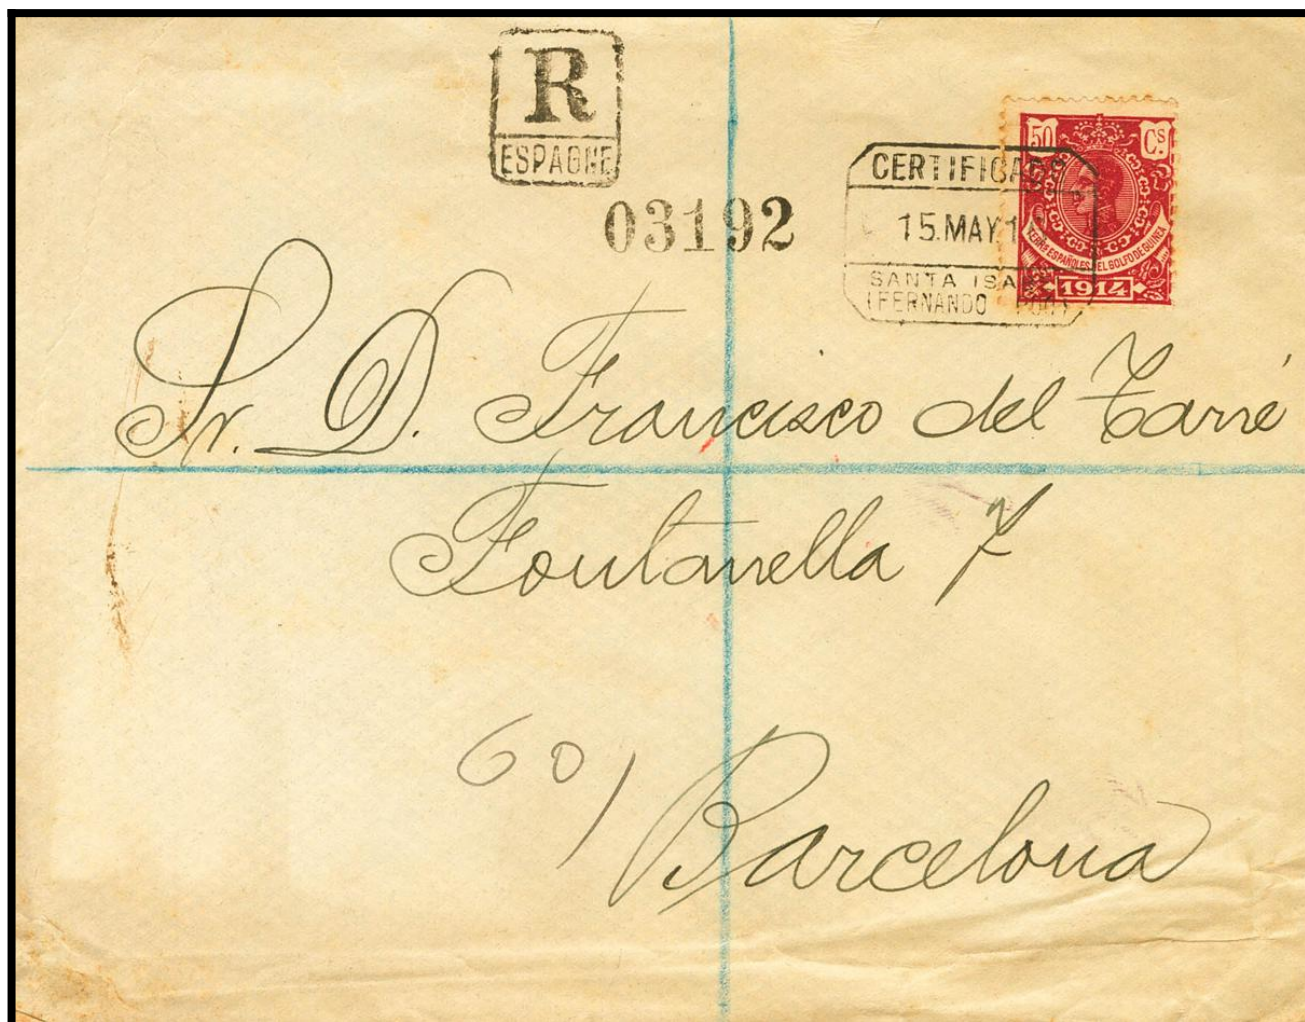 R
ESPAGNE
03192
CERTIFICADO
15.MAY.1
SANTA ISA
(FERNANDO POO)
50 Cs.
TERRS ESPAÑOLES DEL GOLFO DE GUINEA
1914
Sr. D. Francisco del Tarré
Fontanella 7
60/
Barcelona